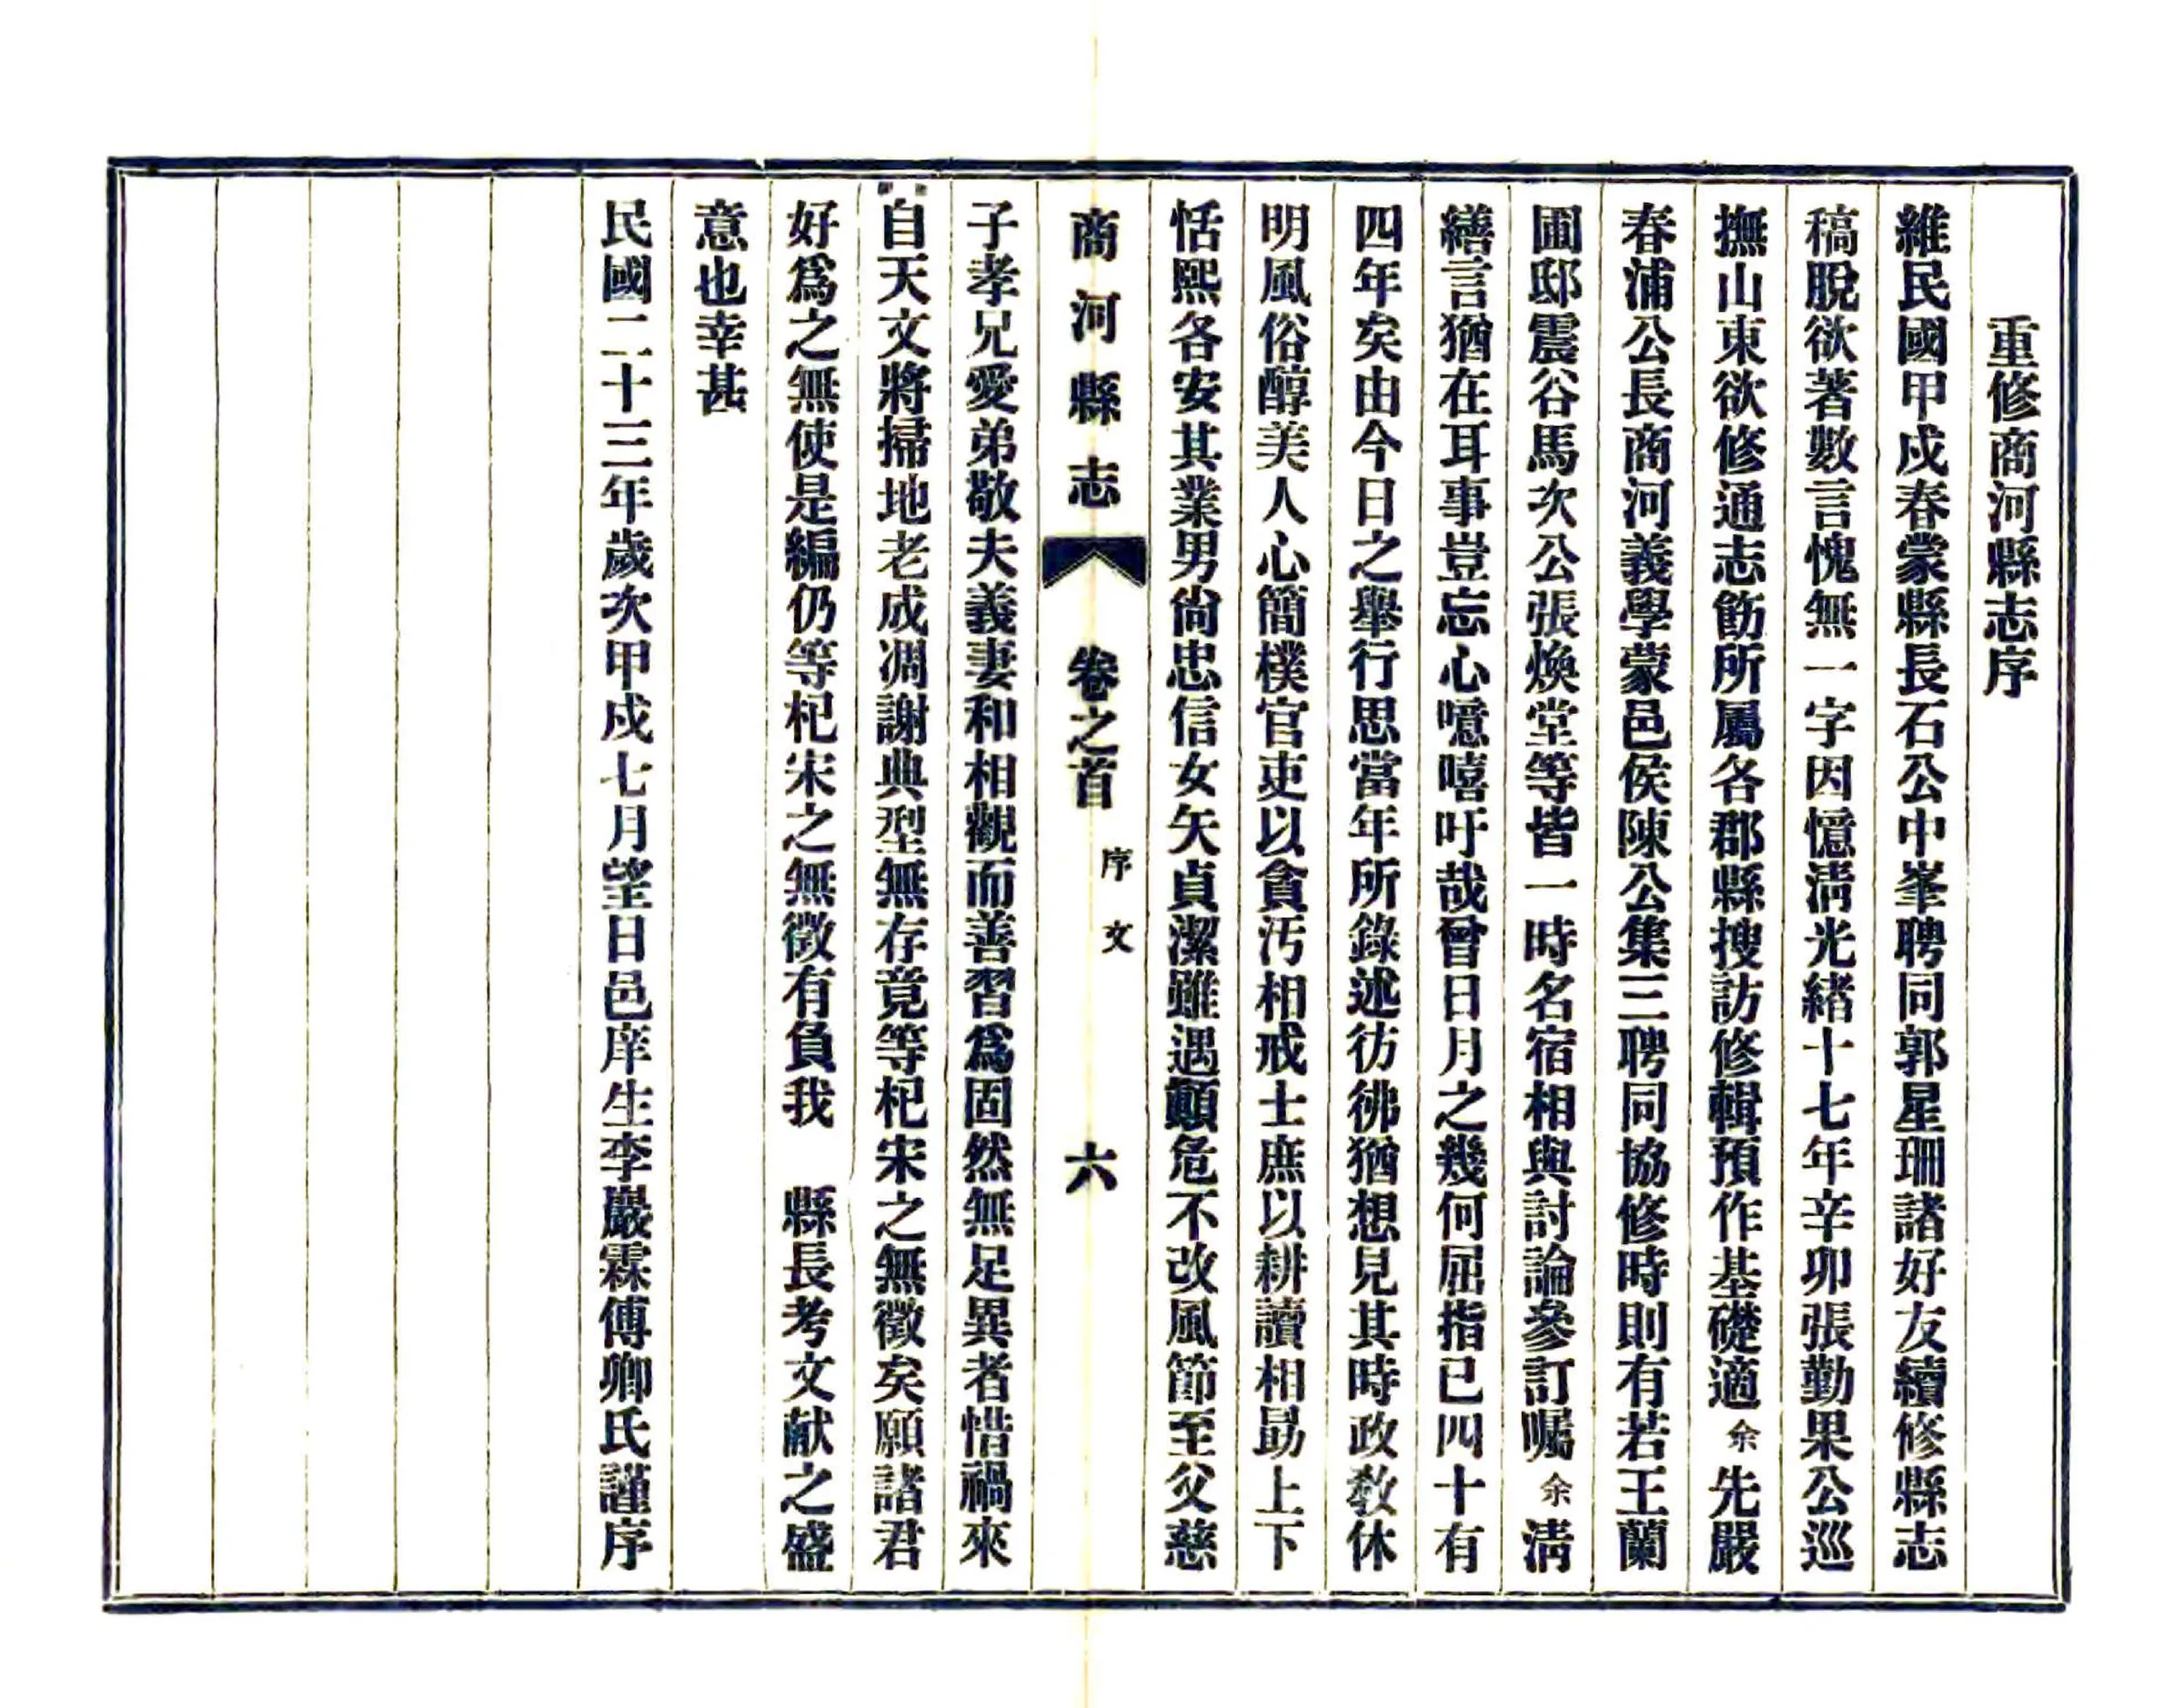 重修商河縣志序
維民國甲戍春蒙縣長石公中峯聘同郭星珊諸好友續修縣志
稿脫欲著數言愧無一字因憶淸光緒十七年辛卯張勤果公巡
撫山東欲修通志飭所屬各郡縣搜訪修輯預作基礎適余先嚴
春浦公長商河義學蒙邑侯陳公集三聘同協修時則有若王蘭
圃邸震谷馬次公張煥堂等皆一時名宿相與討論參訂囑余淸
繕言猶在耳事豈忘心噫嘻吁哉曾日月之幾何屈指已四十有
四年矣由今日之舉行思當年所錄述彷彿猶想見其時政敎休
明風俗醇美人心簡樸官吏以貪汚相戒士庶以耕讀相勗上下
恬熙各安其業男尙忠信女矢貞潔雖遇顚危不改風節至父慈
商河縣志 卷之首 序文 六
子孝兄愛弟敬夫義妻和相觀而善習爲固然無足異者惜禍來
自天文將掃地老成凋謝典型無存竟等杞宋之無徵矣願諸君
好爲之無使是編仍等杞宋之無徵有負我 縣長考文献之盛
意也幸甚
民國二十三年歲次甲戍七月望日邑庠生李巖霖傅卿氏謹序